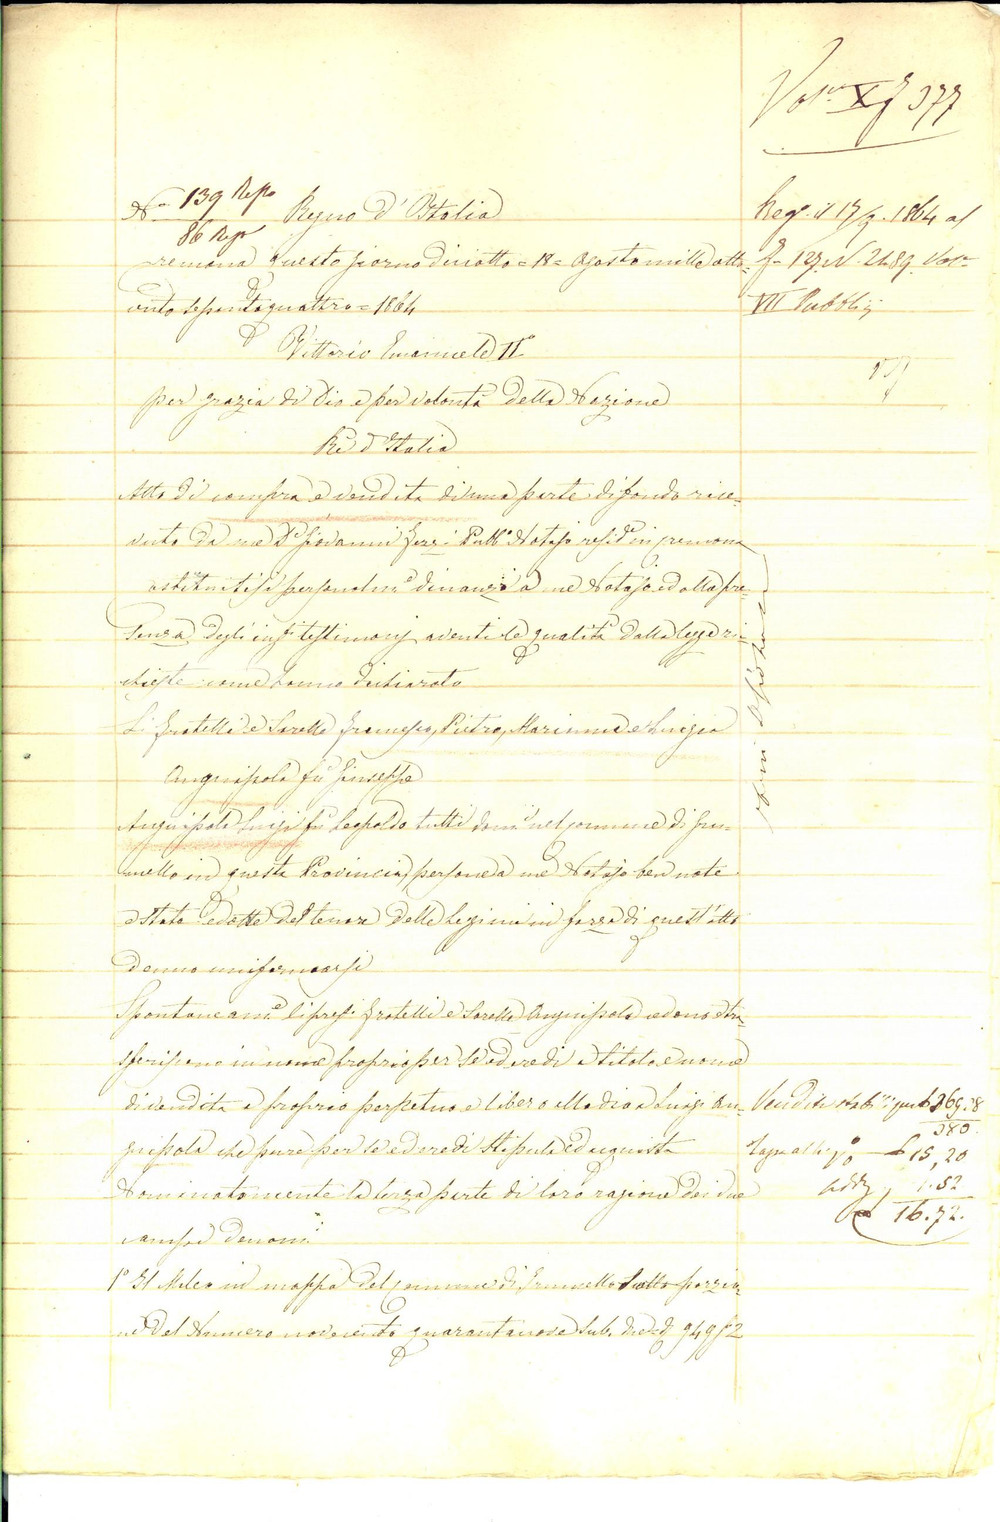 Vol. X f 377
N. 139 Rep.o
86 Rep.
Regno d'Italia
Cremona questo giorno diciotto = 18 = Agosto mille otto-
cento sessantaquattro = 1864
Vittorio Emanuele II°
per grazia di Dio e per volontà della Nazione
Re d'Italia
Atto di compra e vendita di una parte di fondo rice-
vuto da me Dr Giovanni Ferri Pubb.o Notajo resid.e in Cremona
Costituitisi personalm.e dinanzi a me Notajo ed alla pre-
senza degli inf.i testimonj aventi le qualità dalla legge ri-
chieste come hanno dichiarato
Li fratelli e Sorelle Francesco, Pietro, Marianna e Luigia
Anguissola fu Giuseppe
Anguissola Luigi fu Leopoldo tutti dom.i nel comune di Gru-
mello in questa Provincia, persone a me Notajo ben note
e state edotte del tenore delle Leggi cui in forza di quest'atto
denno uniformarsi
Spontaneam.e li pref.i fratelli e Sorelle Anguissola cedono e tra-
sferiscono in nome proprio per sé ed eredi a titolo e nome
di vendita e proprio perpetuo e libero allodio a Luigi An-
guissola che pure per sé ed eredi stipula ed acquista
Nominatamente la terza parte di loro ragione dei due
campi denom.i
1° Il in mappa del Comune di Grumello sotto porzio-
ne del Numero novecento quarantanove Sub. due 949 S 2
Reg. il 17/9. 1864 al
f. 129 N. 2489. Vol.
VII Pubblici
Vendita stabili per £ 369.78
380.
Tassa al 4 p % £ 15,20
add. 1.52
£ 16.72.